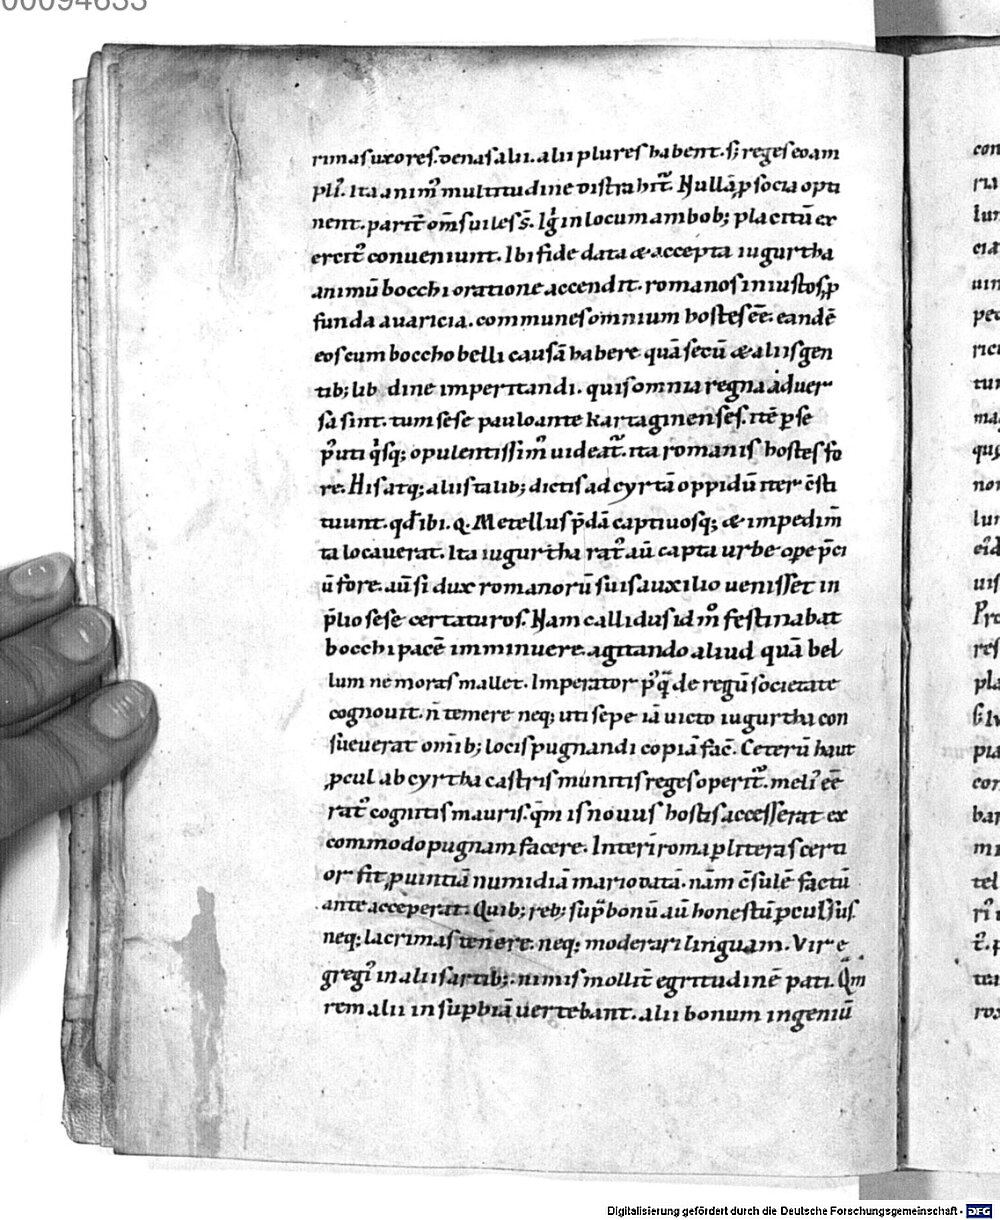 00094633
rimasuxores. denasalii. alii plures habent. s; reges eo am
pli᾽. Ita anim᾽ multitudine distrahit᾽. Nullā ꝑ socia opti
nent. parit̄ om̄s uiles s̄. Ig̍ in locum ambob; placitū ex
ercit᾽ conueniunt. Ibi fide data & accepta iugurtha
animū bocchi oratione accendit. romanos iniustos, ꝓ
funda auaricia. communes omnium hostes eē. eandē
eos cum boccho belli causā habere quā secū & aliis gen
tib; lib dine imperitandi. quis omnia regna aduer
sa sint. tum sese pauloante kartaginenses. itē perse
p᾽uti q̍sq; opulentissim᾽ uideat᾽. ita romanis hostes fo
re. His atq; aliis talib; dictis ad cyrtā oppidū iter c̄sti
tuunt. qd ibi. Q. Metellus p̄dā captiuosq; & impedim̄
ta locauerat. Ita iugurtha rat᾽ aū capta urbe ope p̄ci
ū fore. aū si dux romanorū suis auxilio uenisset in
p̄lio sese certaturos. Nam callidus id m̊ festinabat
bocchi pacē imminuere. agitando aliud quā bel
lum ne moras mallet. Imperator p᾽q̄ de regū societate
cognouit. n̄ temere neq; uti sepe iā uicto iugurtha con
sueuerat om̄ib; locis pugnandi copiā fac̄. Ceterū haut
ꝓcul ab cyrtha castris munitis reges operit᾽. meli᾽ eē
rat᾽ cognitis mauris. qm̄ is nouus hostis accesserat ex
commodo pugnam facere. Interī roma ꝑ literas certi
or fit, ꝓuintiā numidiā mario datā. nām c̄sulē factū
ante acceperat. Quib; reb; sup̄ bonū aū honestū ꝑculsus
neq; lacrimas tenere. neq; moderari linguam. Vir e
gregi᾽ in aliis artib;. nimis mollit̄ egritudinē pati. Qm̄
rem alii in supbiā uertebant. alii bonum ingeniū
Digitalisierung gefördert durch die Deutsche Forschungsgemeinschaft - DFG